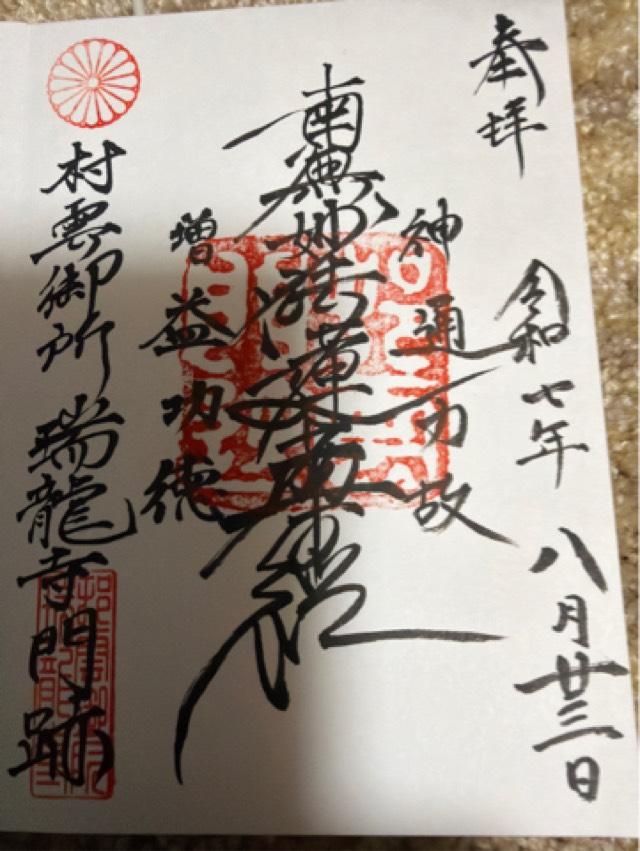 奉拝
令和七年八月廿三日
神通力故
南無妙法蓮華経
増益功徳
村雲御所瑞龍寺門跡